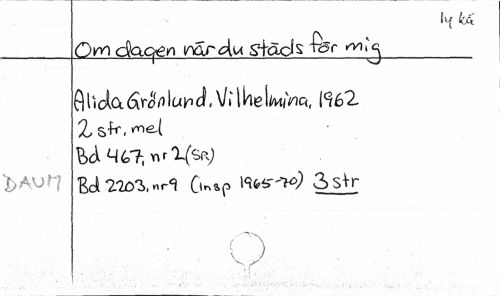 ly kä
Om dagen når du städs för mig
Alida Grönlund, Vilhelmina, 1962
2 str, mel
Bd 467, nr 2 (SR)
DAUM Bd 2203, nr 9 (insp 1965-70) 3 str